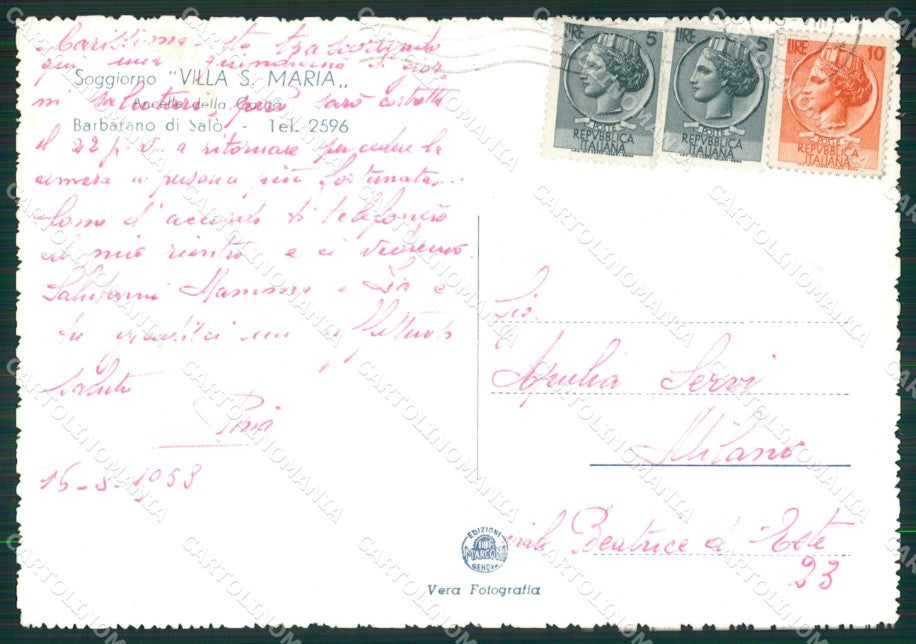 Carissima sto trascorrendo
qui una quindicina di gior
Soggiorno "VILLA S. MARIA"
ni salutari, però sarò costretta
Ancelle della Carità
Barbarano di Salò - Tel. 2596
il 22 p.v. a ritornare per cedere la
camera a persona più fortunata...
Come d'accordo ti telefonerò
al mio rientro e ci vedremo.
Salutami Mamma e Zia e
tu un affettuoso
saluto
Pina
16-8-1953
LIRE 5
POSTE
REPVBBLICA
ITALIANA
LIRE 5
POSTE
REPVBBLICA
ITALIANA
LIRE 10
POSTE
REPVBBLICA
ITALIANA
Sig.
Apulia Servi
Milano
viale Beatrice d'Este
23
EDIZIONI
MARCO
GENOVA
Vera Fotografia
CARTOLINOMANIA